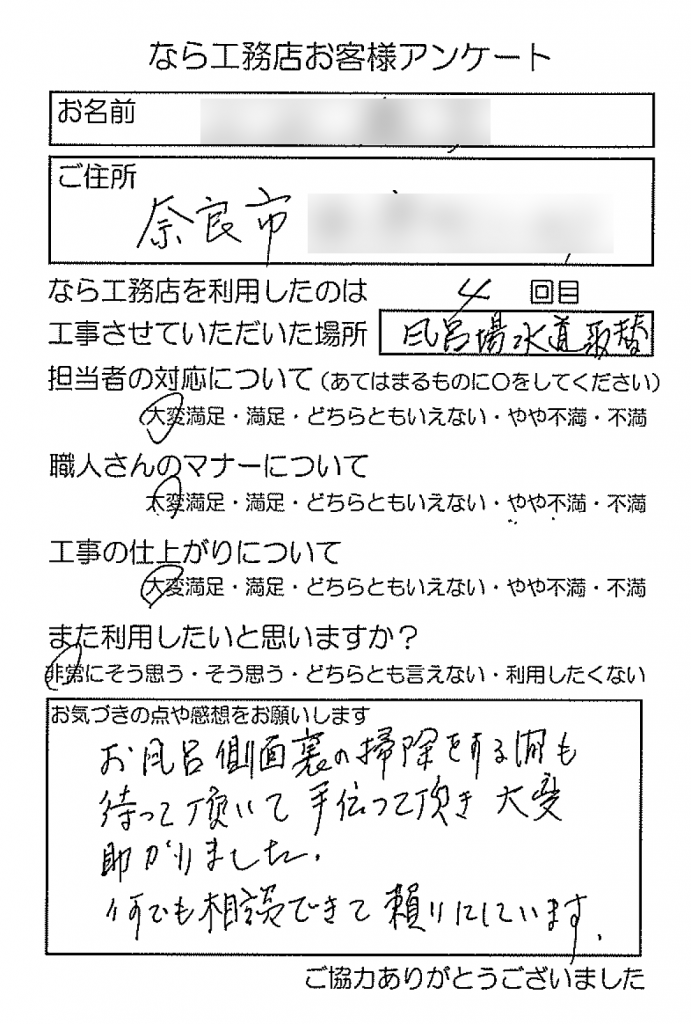 なら工務店お客様アンケート
お名前
ご住所
奈良市
なら工務店を利用したのは 4 回目
工事させていただいた場所 風呂場水道取替
担当者の対応について（あてはまるものに〇をしてください）
大変満足・満足・どちらともいえない・やや不満・不満
職人さんのマナーについて
大変満足・満足・どちらともいえない・やや不満・不満
工事の仕上がりについて
大変満足・満足・どちらともいえない・やや不満・不満
また利用したいと思いますか？
非常にそう思う・そう思う・どちらとも言えない・利用したくない
お気づきの点や感想をお願いします
お風呂側面裏の掃除をする間も
待って頂いて手伝って頂き大変
助かりました。
何でも相談できて頼りにしています。
ご協力ありがとうございました